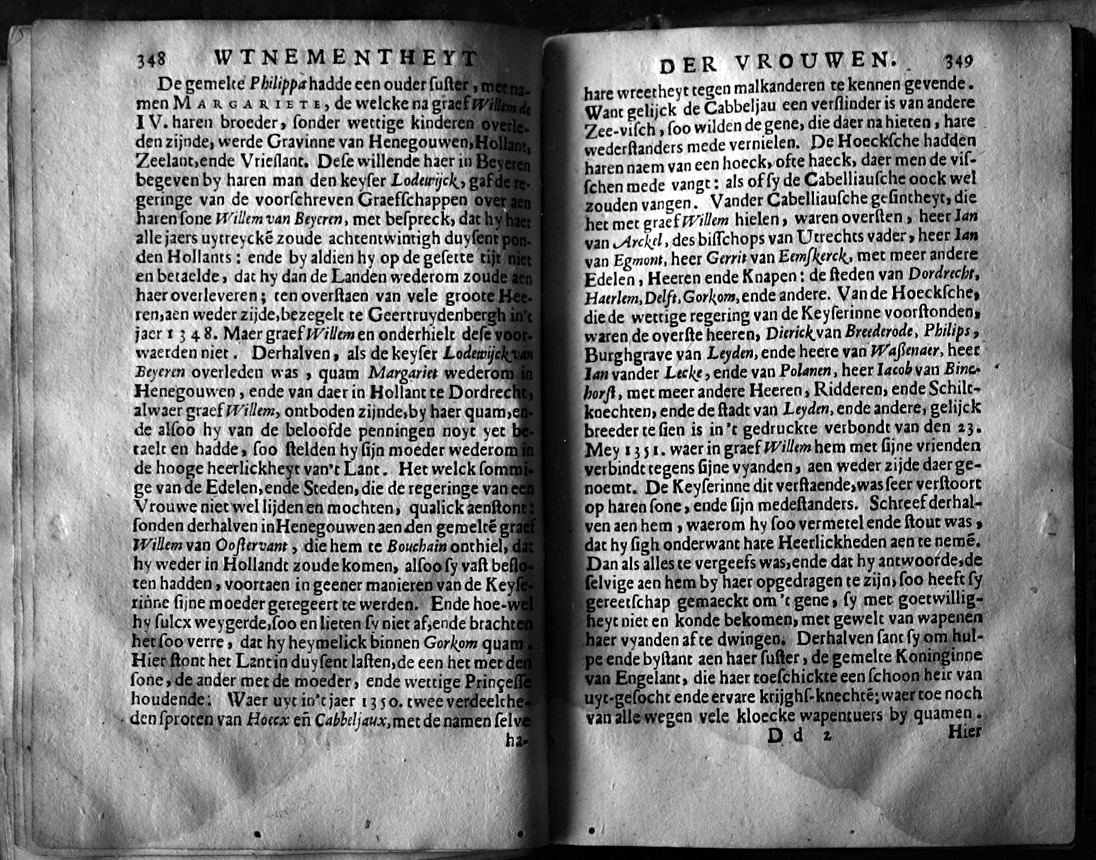 348 WTNEMENTHEYT
De gemelte Philippa hadde een ouder suster, met na-
men MARGARIETE, de welcke na graef Willem de
IV. haren broeder, sonder wettige kinderen overle-
den zijnde, werde Gravinne van Henegouwen, Hollant,
Zeelant, ende Vrieslant. Dese willende haer in Beyeren
begeven by haren man den keyser Lodewijck, gaf de re-
geringe van de voorschreven Graefschappen over aen
haren sone Willem van Beyeren, met bespreck, dat hy haer
alle jaers uytreyckē zoude achtentwintigh duysent pon-
den Hollants: ende by aldien hy op de gesette tijt niet
en betaelde, dat hy dan de Landen wederom zoude aen
haer overleveren; ten overstaen van vele groote Hee-
ren, aen weder zijde, bezegelt te Geertruydenbergh in't
jaer 1348. Maer graef Willem en onderhielt dese voor-
waerden niet. Derhalven, als de keyser Lodewijck van
Beyeren overleden was, quam Margariet wederom in
Henegouwen, ende van daer in Hollant te Dordrecht,
alwaer graef Willem, ontboden zijnde, by haer quam, en-
de alsoo hy van de beloofde penningen noyt yet be-
taelt en hadde, soo stelden hy sijn moeder wederom in
de hooge heerlickheyt van't Lant. Het welck sommi-
ge van de Edelen, ende Steden, die de regeringe van een
Vrouwe niet wel lijden en mochten, qualick aenstont:
sonden derhalven in Henegouwen aen den gemeltē graef
Willem van Oostervant, die hem te Bouchain onthiel, dat
hy weder in Hollandt zoude komen, alsoo sy vast beslo-
ten hadden, voortaen in geener manieren van de Keyse-
rinne sijne moeder geregeert te werden. Ende hoe-wel
hy sulcx weygerde, soo en lieten sy niet af, ende brachten
het soo verre, dat hy heymelick binnen Gorkom quam.
Hier stont het Lant in duysent lasten, de een het met den
sone, de ander met de moeder, ende wettige Prinçesse
houdende: Waer uyt in't jaer 1350. twee verdeelthe-
den sproten van Hoecx eñ Cabbeljaux, met de namen selve
ha-
DER VROUWEN. 349
hare wreetheyt tegen malkanderen te kennen gevende.
Want gelijck de Cabbeljau een verslinder is van andere
Zee-visch, soo wilden de gene, die daer na hieten, hare
wederstanders mede vernielen. De Hoecksche hadden
haren naem van een hoeck, ofte haeck, daer men de vis-
schen mede vangt: als of sy de Cabelliausche oock wel
zouden vangen. Vander Cabelliausche gesintheyt, die
het met graef Willem hielen, waren oversten, heer Ian
van Arckel, des bisschops van Utrechts vader, heer Ian
van Egmont, heer Gerrit van Eemskerck, met meer andere
Edelen, Heeren ende Knapen: de steden van Dordrecht,
Haerlem, Delft, Gorkom, ende andere. Van de Hoecksche,
die de wettige regering van de Keyserinne voorstonden,
waren de overste heeren, Dierick van Breederode, Philips,
Burghgrave van Leyden, ende heere van Waßenaer, heer
Ian vander Lecke, ende van Polanen, heer Iacob van Binc-
horst, met meer andere Heeren, Ridderen, ende Schilt-
knechten, ende de stadt van Leyden, ende andere, gelijck
breeder te sien is in't gedruckte verbondt van den 23.
Mey 1351. waer in graef Willem hem met sijne vrienden
verbindt tegens sijne vyanden, aen weder zijde daer ge-
noemt. De Keyserinne dit verstaende, was seer verstoort
op haren sone, ende sijn medestanders. Schreef derhal-
ven aen hem, waerom hy soo vermetel ende stout was,
dat hy sigh onderwant hare Heerlickheden aen te nemē.
Dan als alles te vergeefs was, ende dat hy antwoorde, de
selvige aen hem by haer opgedragen te zijn, soo heeft sy
gereetschap gemaeckt om 't gene, sy met goetwillig-
heyt niet en konde bekomen, met gewelt van wapenen
haer vyanden af te dwingen. Derhalven sant sy om hul-
pe ende bystant aen haer suster, de gemelte Koninginne
van Engelant, die haer toeschickte een schoon heir van
uyt-gesocht ende ervare krijghs-knechtē; waer toe noch
van alle wegen vele kloecke wapentuers by quamen.
Dd 2 Hier